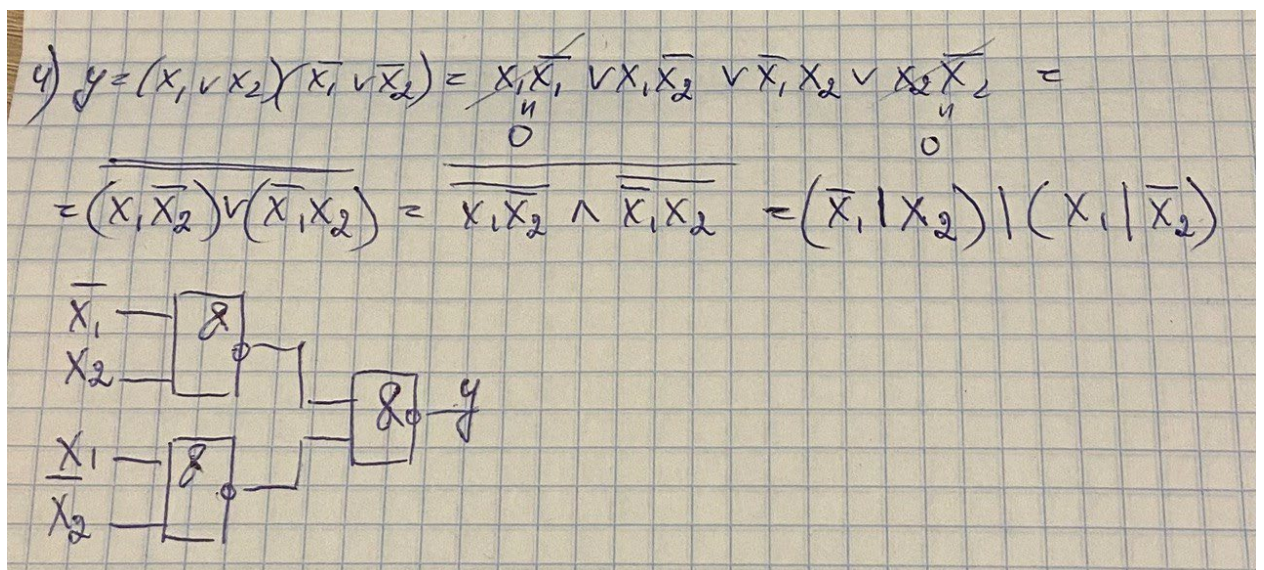 4) y = (x₁ ∨ x₂)(x̅₁ ∨ x̅₂) = x₁x̅₁ ∨ x₁x̅₂ ∨ x̅₁x₂ ∨ x₂x̅₂ =
" "
0 0
= \overline{\overline{(x₁x̅₂) ∨ (x̅₁x₂)}} = \overline{\overline{x₁x̅₂} ∧ \overline{x̅₁x₂}} = (x̅₁ | x₂) | (x₁ | x̅₂)
x̅₁ &
x₂
& y
x₁ &
x̅₂